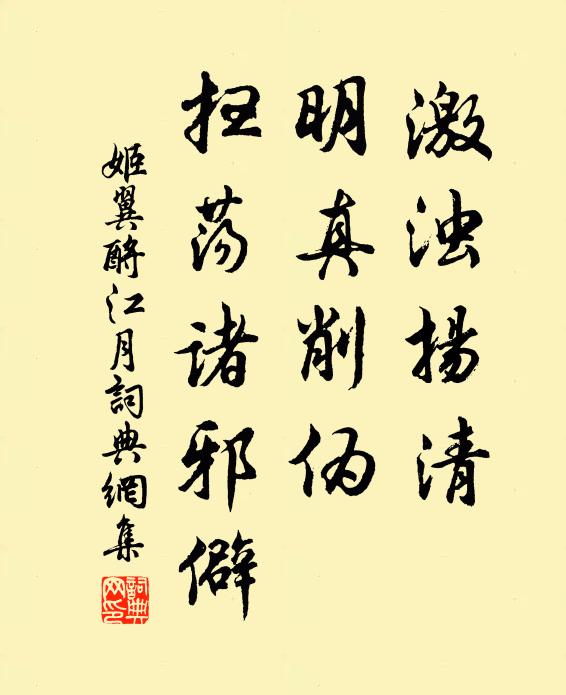 激浊揚清
明真削伪
扫荡诸邪僻
姬翼酹江月詞典網集
詞典网印